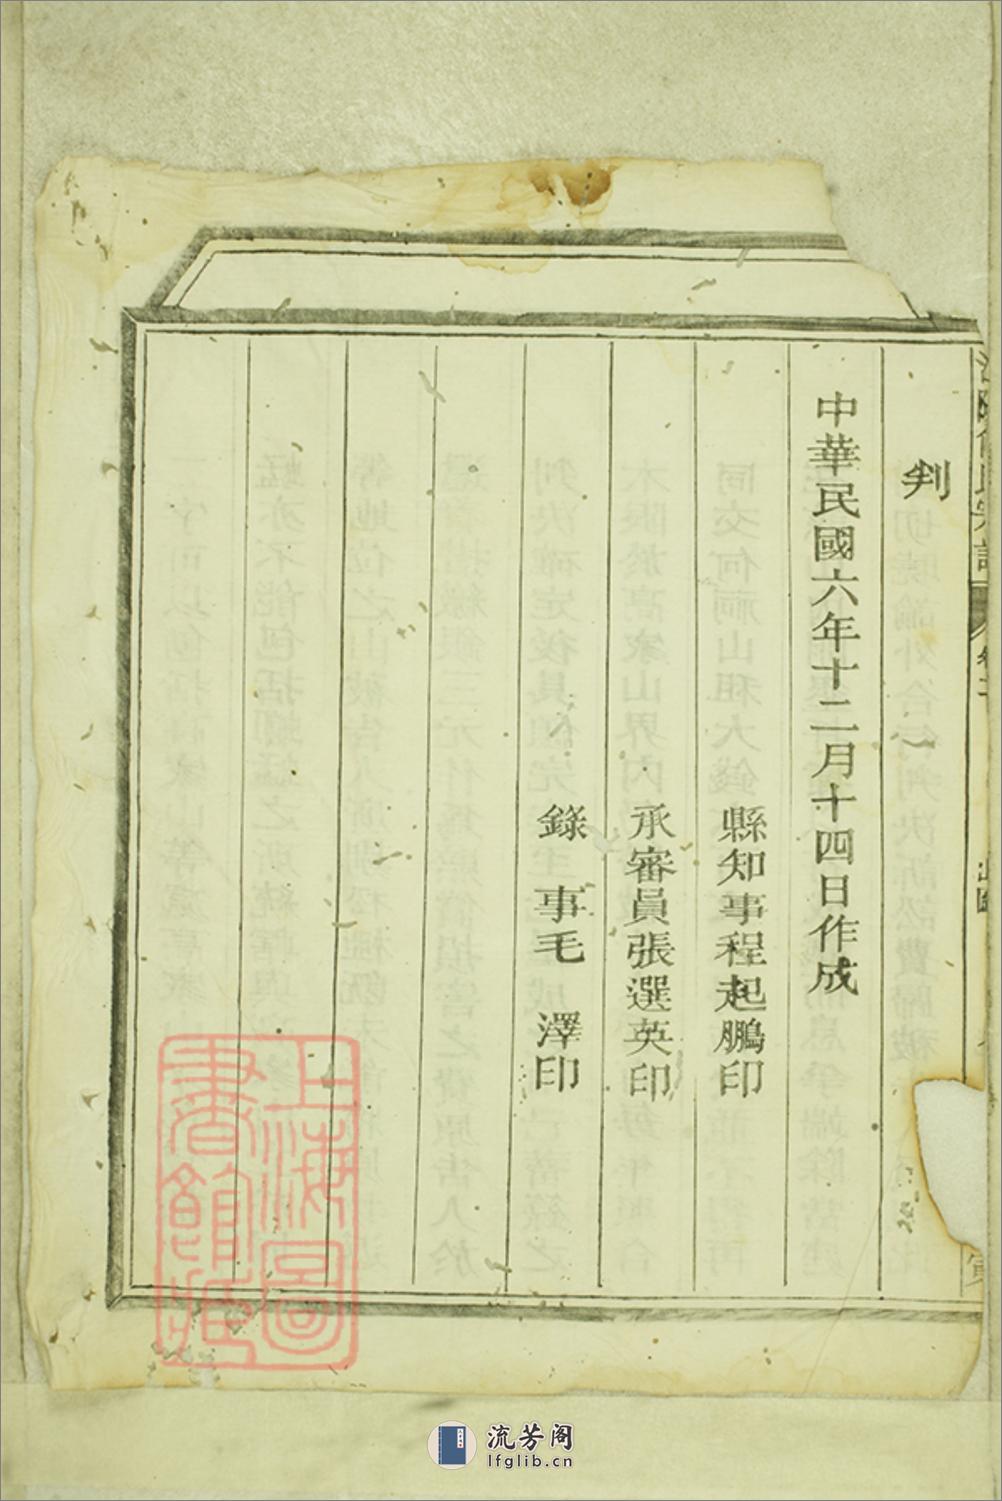 判
中華民國六年十二月十四日作成
縣知事程起鵬印
承審員張選英印
錄事毛澤印
上海圖書館藏
流芳阁
lfglib.cn